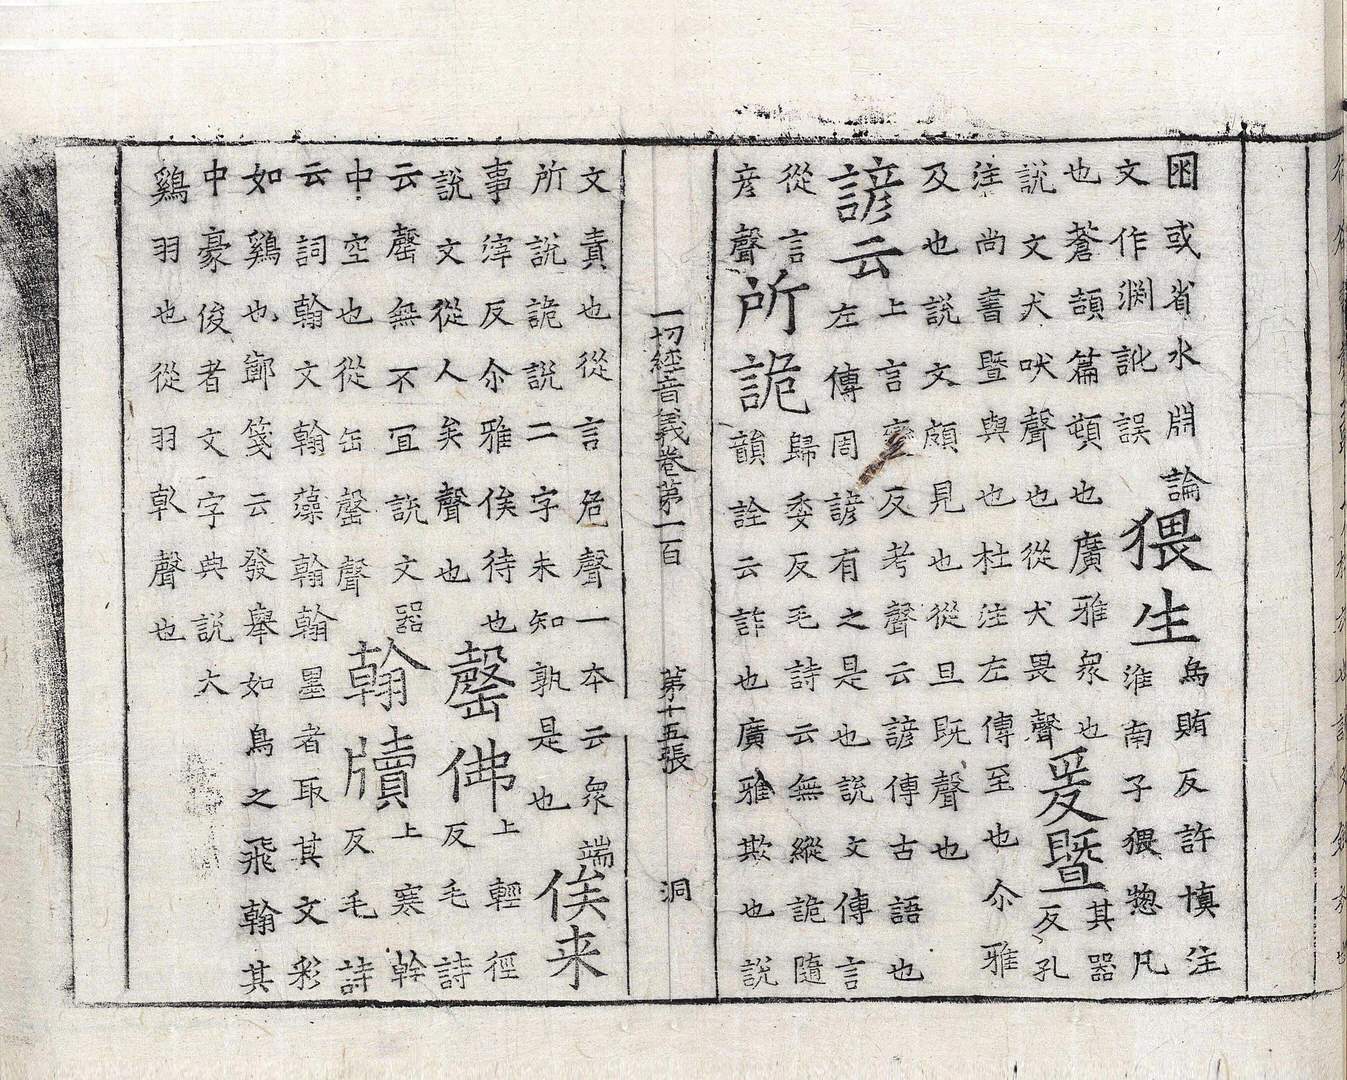 囦或省水𣶒論
文作渊訛誤
猥生
烏賄反許慎注
淮南子猥惣凡
也蒼頡篇頓也廣雅衆也
說文犬吠聲也從犬畏聲
爰暨
其器
反孔
注尚書暨與也杜注左傳至也尒雅
及也說文頗見也從旦既聲也
諺云
上言變反考聲云諺傳古語也
左傳周諺有之是也說文傳言
從言
彦聲
所詭
歸委反毛詩云無縱詭隨
韻詮云詐也廣雅欺也說
一切經音義卷第一百 第十五張 洞
文責也從言危聲一本云衆端
所說詭說二字未知孰是也
俟来
事滓反尒雅俟待也
說文從人矣聲也
罄佛
上輕徑
反毛詩
云罄無不冝說文器
中空也從缶罄聲
翰牘
上寒幹
反毛詩
云詞翰文翰藻翰翰墨者取其文彩
如鷄也鄭箋云發舉如鳥之飛翰其
中豪俊者文字典說大
鷄羽也從羽倝聲也